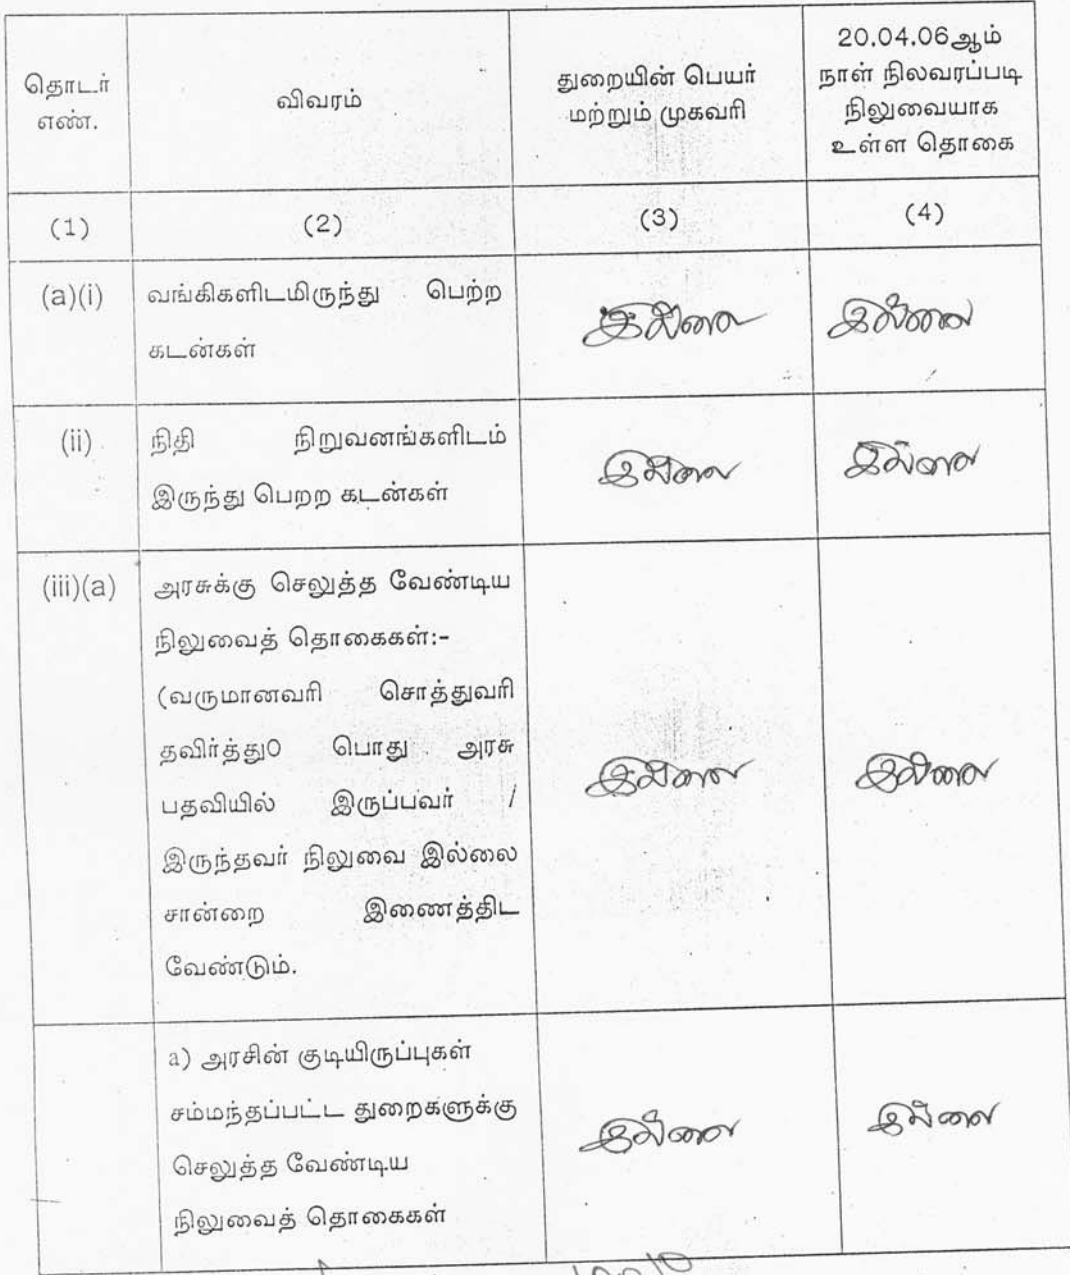 தொடர் எண்.
விவரம்
துறையின் பெயர் மற்றும் முகவரி
20.04.06ஆம்
நாள் நிலவரப்படி
நிலுவையாக
உள்ள தொகை
(1) (2) (3) (4)
(a)(i) வங்கிகளிடமிருந்து பெற்ற இல்லை இல்லை
கடன்கள்
(ii) நிதி நிறுவனங்களிடம் இல்லை இல்லை
இருந்து பெறற கடன்கள்
(iii)(a) அரசுக்கு செலுத்த வேண்டிய
நிலுவைத் தொகைகள்:-
(வருமானவரி சொத்துவரி
தவிர்த்து0 பொது அரசு இல்லை இல்லை
பதவியில் இருப்பவர் /
இருந்தவர் நிலுவை இல்லை
சான்றை இணைத்திட
வேண்டும்.
a) அரசின் குடியிருப்புகள்
சம்மந்தப்பட்ட துறைகளுக்கு இல்லை இல்லை
செலுத்த வேண்டிய
நிலுவைத் தொகைகள்